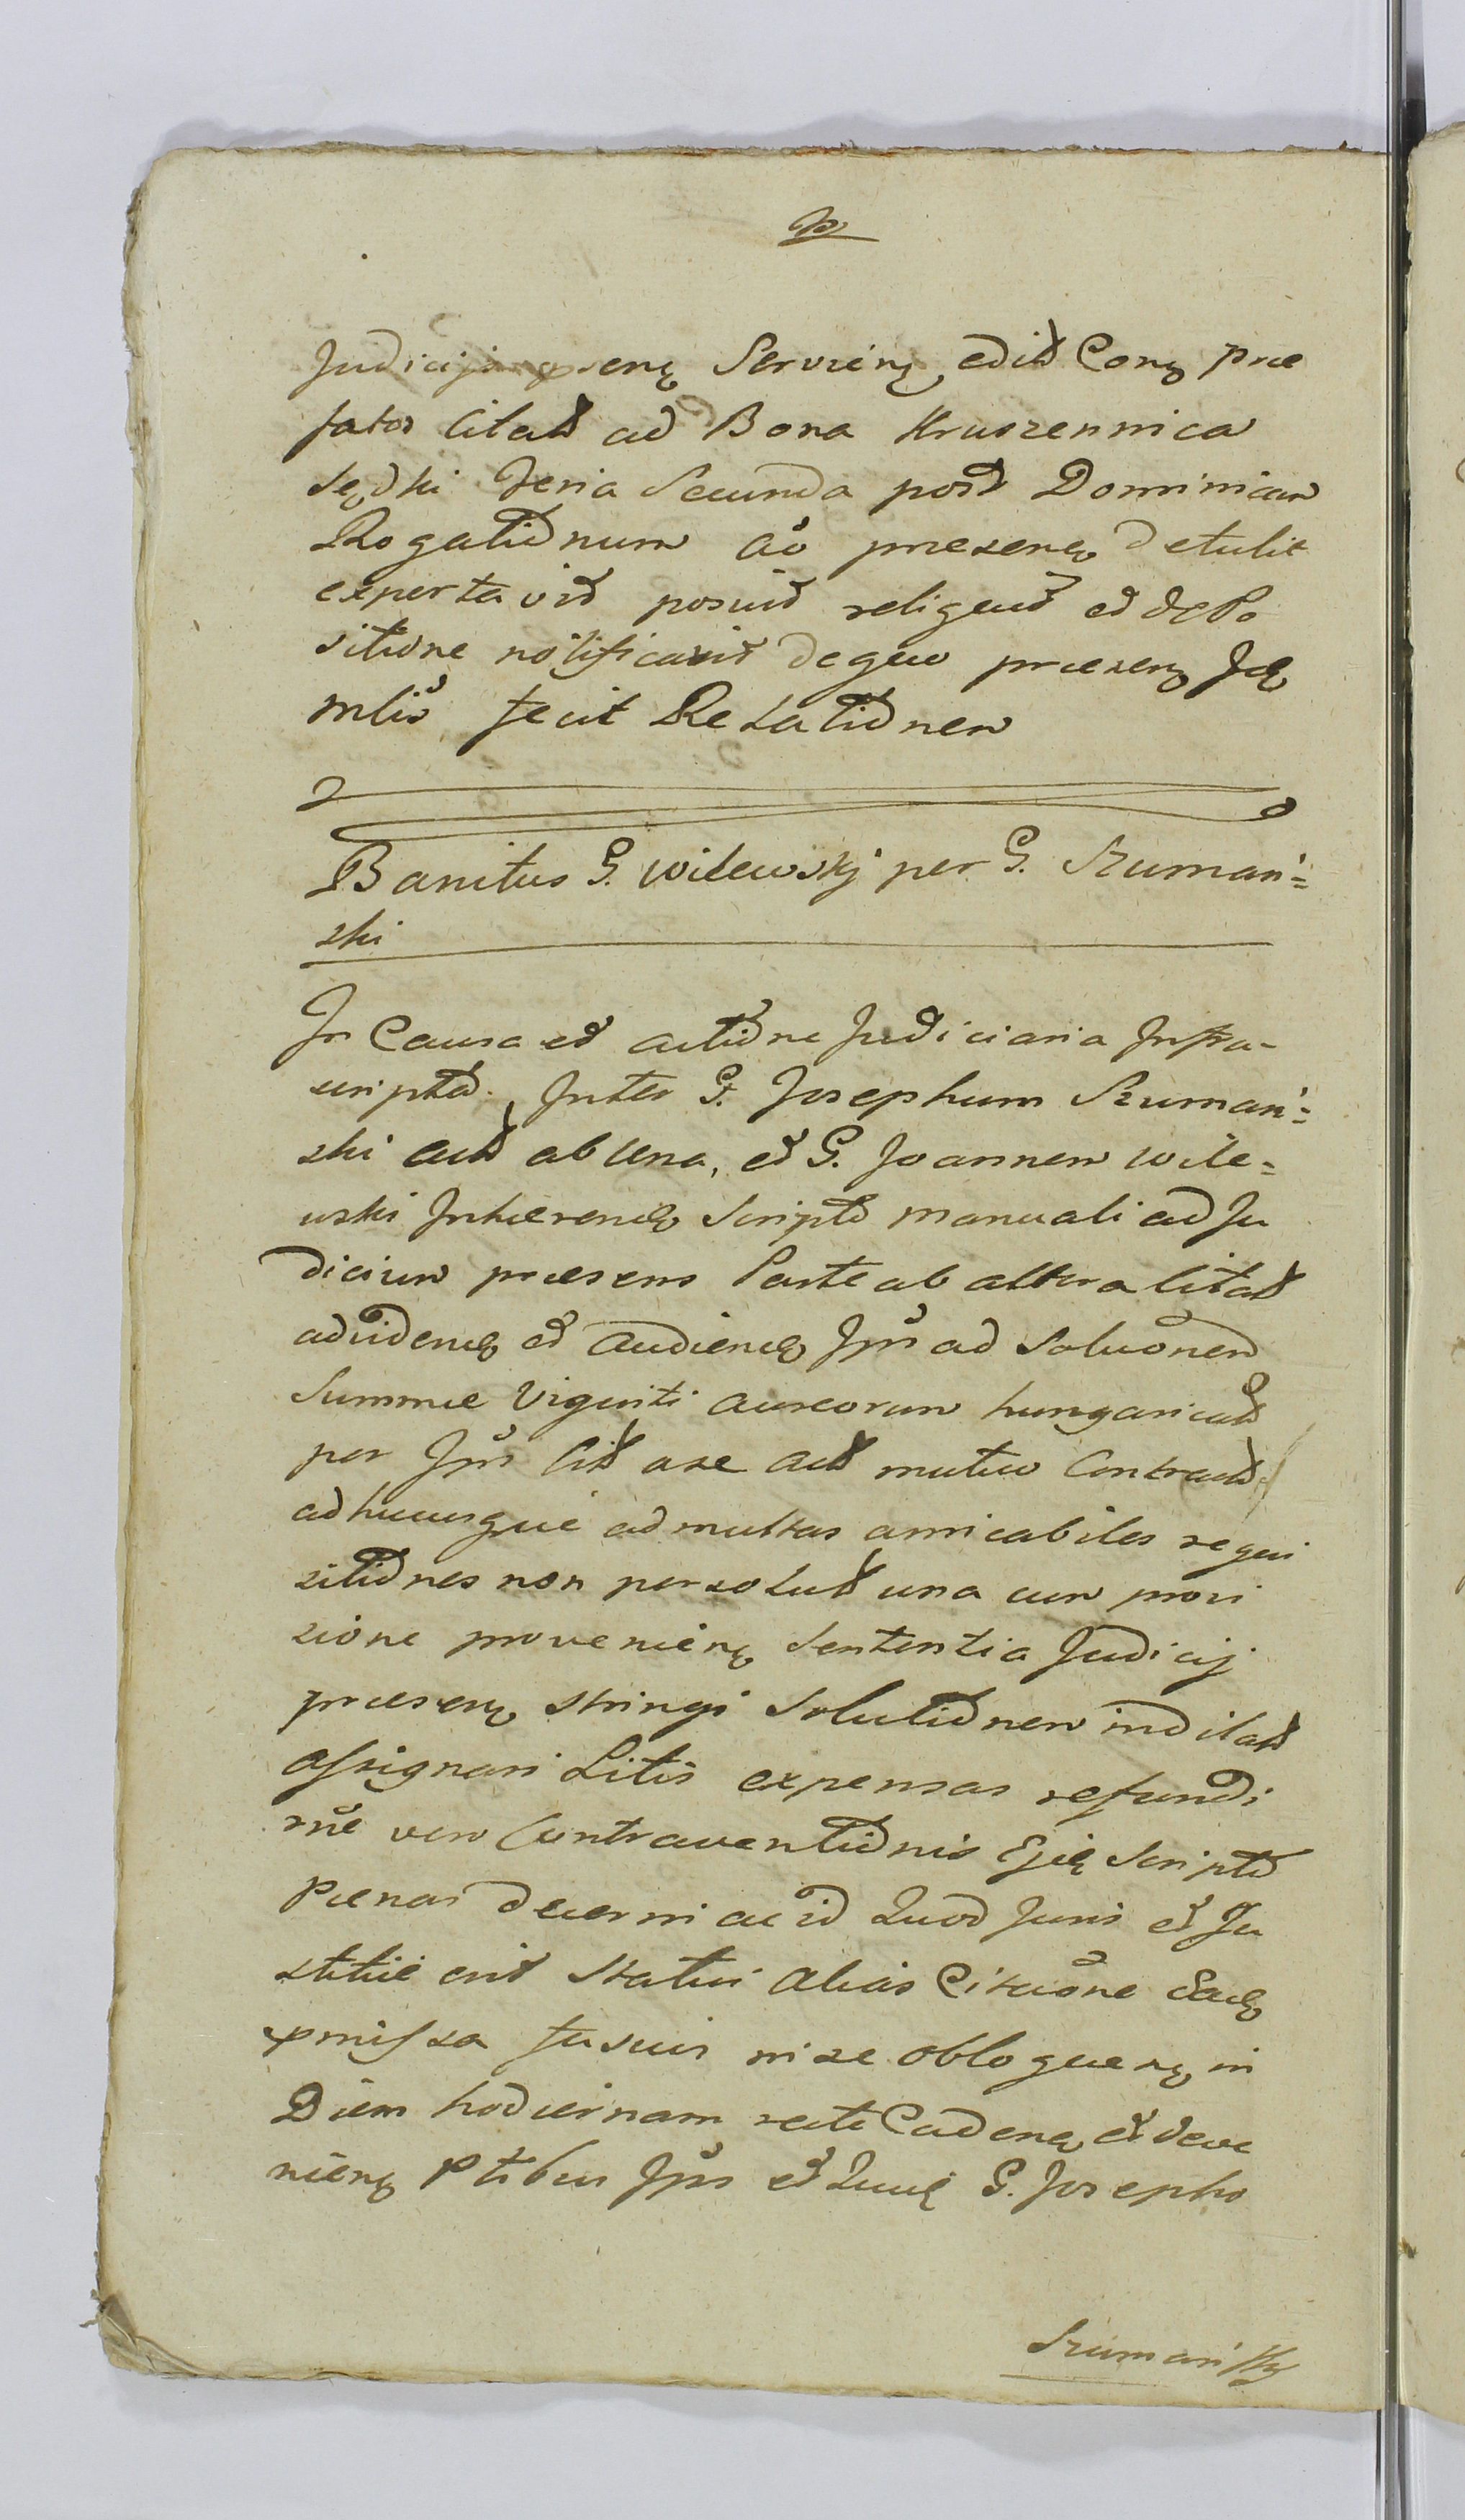 Judicij praesenţ Servienţ edit Conţ prae
fatos Citat ad Bona Kruszennica
Sędki Feria Secunda post Dominicam
Rogationum aõ praesenţ detulit
exportavit posuit reliquit et depo
sitione notificavit de quo praesenţ
mlis fecit Relationem
Banitus G. Wilewskj per G. Szumań=
ski
In Causa et actione Judiciaria Infra-
scripta. Inter G. Josephum Szumań=
ski act ab una, et G. Joannem Wile=
wski Inhaerenď Scripto manuali ad Ju
dicium praesens Parte ab altera Citat
ad videnď et audienď Ipm ad Soluõnem
Summae Viginti aureorum hungaricat
per Ipm Cit a se act mutuo Contract
adhucusque ad multas amicabiles requi
sitiones non persolut una cum provi
sione provenienţ Sententia Judicij
praesenţ stringi Solutionem indilat
assignari Litis expensas refundi
rñe vero Contraventionis Ejusď Scripto
Paenas decerni ac id Quod Juris et Ju
stitiae erit Statui alias Citaõne eaď
pmissa fusius in se obloquenţ in
Diem hodiernam recte Cadenţ et deve
nienţ Ptibus Ipis et quid G. Josepho
Szumański